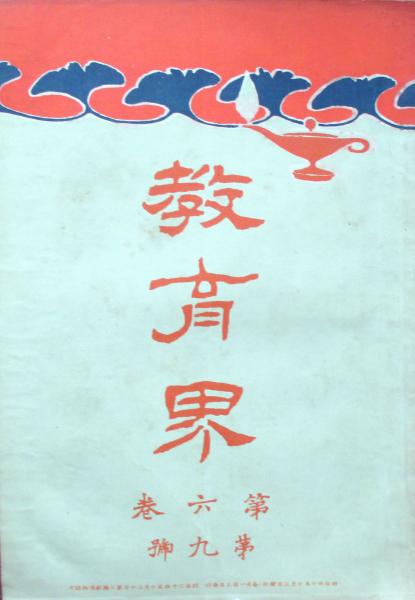 教育界
第六卷
第九號